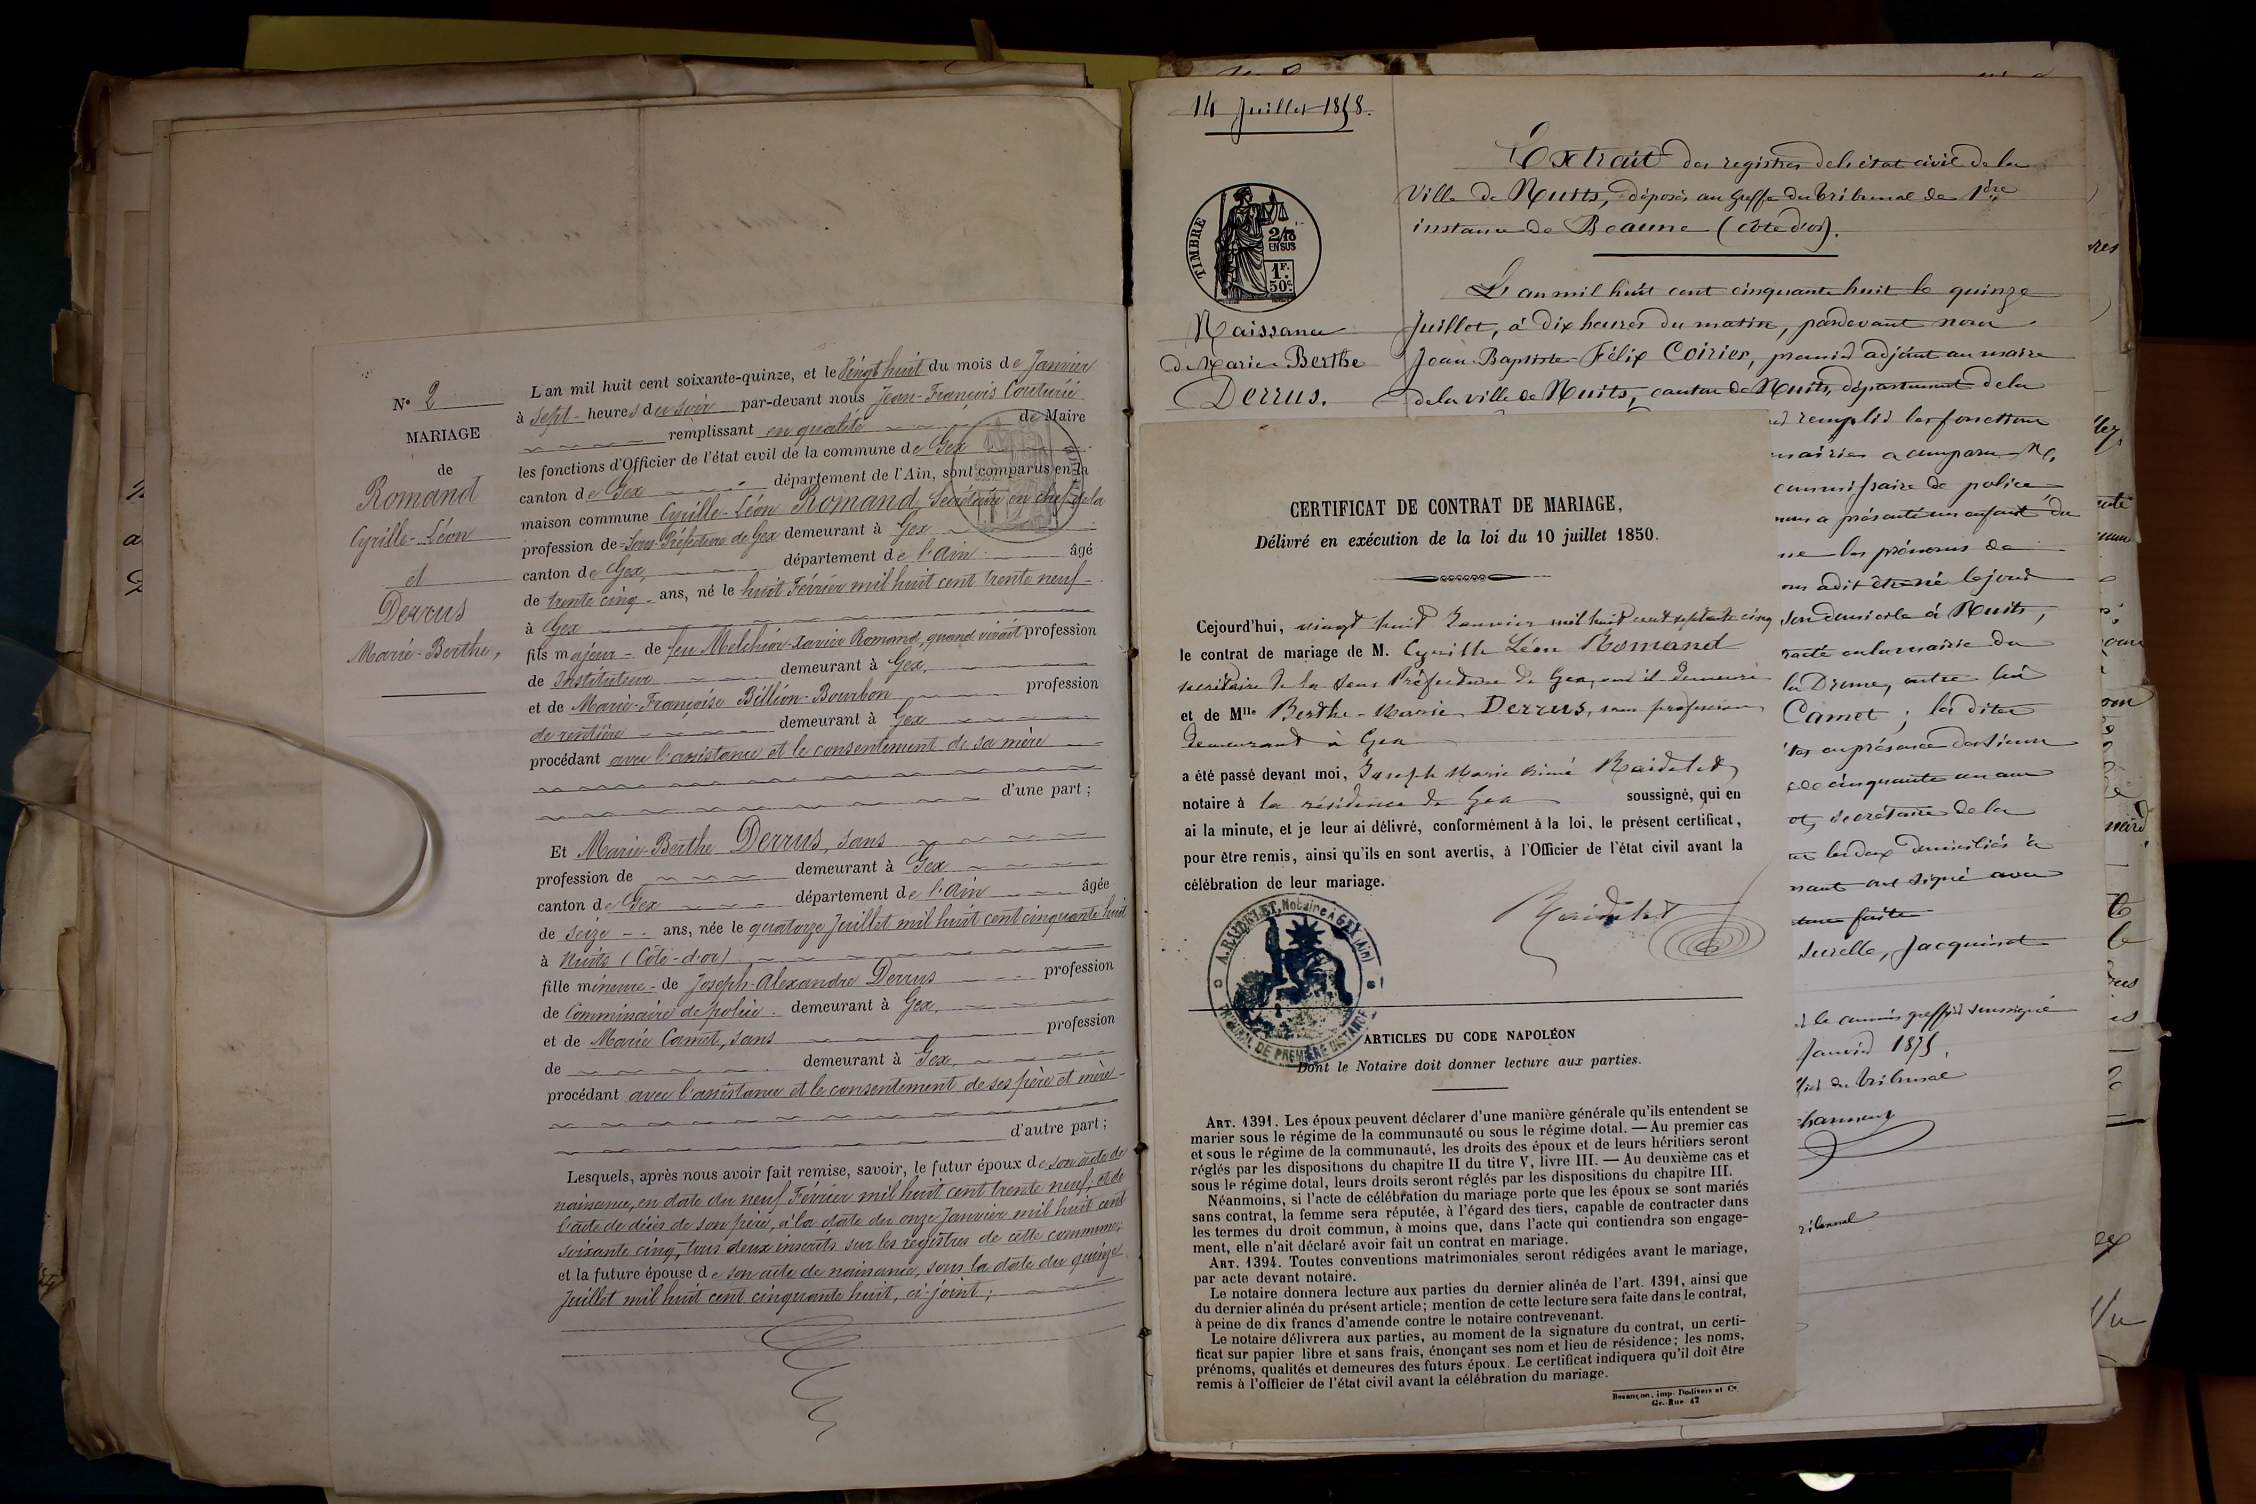 N° 2
MARIAGE
de
Romand
Cyrille-Léon
et
Derrus
Marie-Berthe,
L'an mil huit cent soixante-quinze, et le Vingt huit du mois de Janvier
à sept heures du soir par-devant nous Jean-François Couturier
remplissant en qualité de Maire
les fonctions d'Officier de l'état civil de la commune de Gex
canton de Gex département de l'Ain, sont comparus en la
maison commune Cyrille-Léon Romand, Secrétaire en chef de la
profession de Sous-Préfecture de Gex demeurant à Gex
canton de Gex, département de l'Ain âgé
de trente cinq ans, né le huit Février mil huit cent trente neuf
à Gex
fils majeur de feu Melchior-Xavier Romand, quand vivait profession
de Instituteur demeurant à Gex,
et de Marie-Françoise Billion-Bourbon profession
de rentière demeurant à Gex
procédant avec l'assistance et le consentement de sa mère
d'une part ;
Et Marie-Berthe Derrus, sans
profession de demeurant à Gex
canton de Gex département de l'Ain âgée
de seize ans, née le quatorze Juillet mil huit cent cinquante huit
à Nuits (Côte-d'or)
fille mineure de Joseph-Alexandre Derrus profession
de Commissaire de police demeurant à Gex,
et de Marie Camet, sans profession
de demeurant à Gex,
procédant avec l'assistance et le consentement de ses père et mère
d'autre part ;
Lesquels, après nous avoir fait remise, savoir, le futur époux de son acte de
naissance, en date du neuf Février mil huit cent trente neuf, et de
l'acte de décès de son père, à la date du onze Janvier mil huit cent
soixante cinq, tous deux inscrits sur les registres de cette commune;
et la future épouse de son acte de naissance, sous la date du quinze
Juillet mil huit cent cinquante huit, ci-joint;
14 Juillet 1858.
TIMBRE
2/10
EN SUS
1F.
50c.
Naissance
de Marie Berthe
Derrus.
Extrait des registres de l'état civil de la
Ville de Nuits, déposés au greffe du Tribunal de 1ère
instance de Beaune (côte d'or).
L'an mil huit cent cinquante huit le quinze
Juillet, à dix heures du matin, pardevant nous
Jean-Baptiste-Félix Coirier, premier adjoint au maire
de la ville de Nuits, canton de Nuits, département de la
remplir les fonctions
mairie a comparu M.
commissaire de police
nous a présenté un enfant du
les prénoms de
a dit être né le jour
son domicile à Nuits,
en la mairie de
la Drome, entre lui
Camet ; la dite
en présence des sieurs
cinquante un ans
secrétaire de la
les deux domiciliés à
ont signé avec
faite
Jacquinot
le commis greffier soussigné
Janvier 1875.
du tribunal
CERTIFICAT DE CONTRAT DE MARIAGE,
Délivré en exécution de la loi du 10 juillet 1850.
Cejourd'hui, vingt huit Janvier mil huit cent septante cinq
le contrat de mariage de M. Cyrille Léon Romand
secrétaire de la Sous Préfecture de Gex, où il demeure
et de Mlle Berthe-Marie Derrus, sans profession
demeurant à Gex
a été passé devant moi, Joseph Marie Aimé Raidelet
notaire à la résidence de Gex soussigné, qui en
ai la minute, et je leur ai délivré, conformément à la loi, le présent certificat,
pour être remis, ainsi qu'ils en sont avertis, à l'Officier de l'état civil avant la
célébration de leur mariage.
Raidelet
A. RAIDELET, Notaire à GEX (Ain)
TRIBUNAL DE PREMIÈRE INSTANCE
ARTICLES DU CODE NAPOLÉON
Dont le Notaire doit donner lecture aux parties.
ART. 1391. Les époux peuvent déclarer d'une manière générale qu'ils entendent se
marier sous le régime de la communauté ou sous le régime dotal. — Au premier cas
et sous le régime de la communauté, les droits des époux et de leurs héritiers seront
réglés par les dispositions du chapitre II du titre V, livre III. — Au deuxième cas et
sous le régime dotal, leurs droits seront réglés par les dispositions du chapitre III.
Néanmoins, si l'acte de célébration du mariage porte que les époux se sont mariés
sans contrat, la femme sera réputée, à l'égard des tiers, capable de contracter dans
les termes du droit commun, à moins que, dans l'acte qui contiendra son engage-
ment, elle n'ait déclaré avoir fait un contrat en mariage.
ART. 1394. Toutes conventions matrimoniales seront rédigées avant le mariage,
par acte devant notaire.
Le notaire donnera lecture aux parties du dernier alinéa de l'art. 1391, ainsi que
du dernier alinéa du présent article; mention de cette lecture sera faite dans le contrat,
à peine de dix francs d'amende contre le notaire contrevenant.
Le notaire délivrera aux parties, au moment de la signature du contrat, un certi-
ficat sur papier libre et sans frais, énonçant ses nom et lieu de résidence; les noms,
prénoms, qualités et demeures des futurs époux. Le certificat indiquera qu'il doit être
remis à l'officier de l'état civil avant la célébration du mariage.
Besançon, imp. Dodivers et Cie,
Gr.-Rue 42